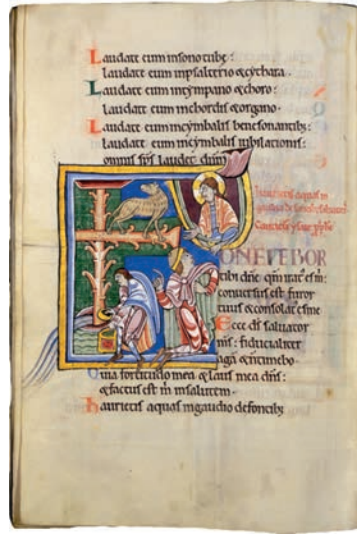 Laudate eum in sono tubę:
laudate eum in psalterio & cythara.
Laudate eum in tympano & choro:
laudate eum in chordis & organo.
Laudate eum in cymbalis benesonantibꝫ:
laudate eum in cymbalis iubilationis:
omnis sp̄s laudet dn̄m
haurietis aquas in
gaudio de fontibꝫ
ONFITEBOR
tibi dn̄e qm̄ irat' es m̄:
conuersus est furor
tuus & consolat' es me
Ecce ds̄ saluator
ms̄: fiducialiter
agā & n̄ timebo.
Quia fortitudo mea & laus mea dn̄s:
& factus est m̄ in salutem.
Haurietis aquas in gaudio de fontibꝫ